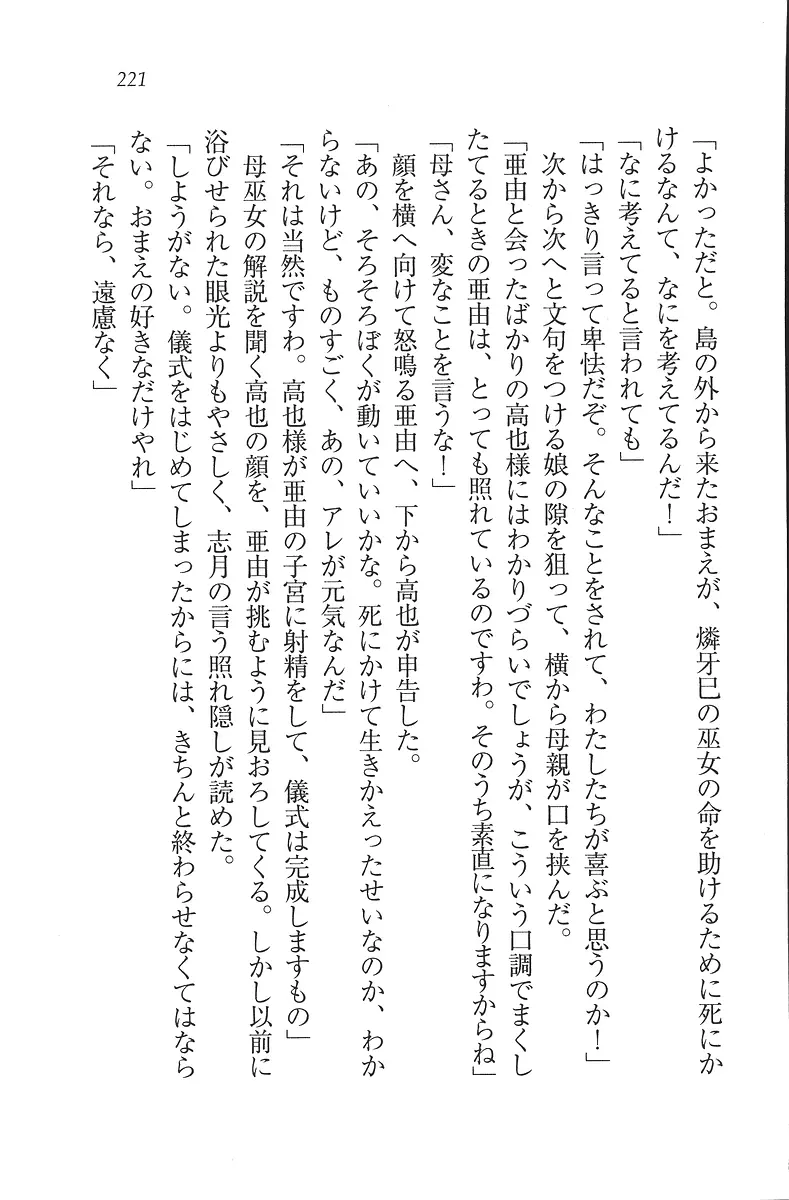 221
「よかっただと。島の外から来たおまえが、燐牙巳の巫女の命を助けるために死にか
けるなんて、なにを考えてるんだ！」
「なに考えてると言われても」
「はっきり言って卑怯だぞ。そんなことをされて、わたしたちが喜ぶと思うのか！」
次から次へと文句をつける娘の隙を狙って、横から母親が口を挟んだ。
「亜由と会ったばかりの高也様にはわかりづらいでしょうが、こういう口調でまくし
たてるときの亜由は、とっても照れているのですわ。そのうち素直になりますからね」
「母さん、変なことを言うな！」
顔を横へ向けて怒鳴る亜由へ、下から高也が申告した。
「あの、そろそろぼくが動いていいかな。死にかけて生きかえったせいなのか、わか
らないけど、ものすごく、あの、アレが元気なんだ」
「それは当然ですわ。高也様が亜由の子宮に射精をして、儀式は完成しますもの」
母巫女の解説を聞く高也の顔を、亜由が挑むように見おろしてくる。しかし以前に
浴びせられた眼光よりもやさしく、志月の言う照れ隠しが読めた。
「しようがない。儀式をはじめてしまったからには、きちんと終わらせなくてはなら
ない。おまえの好きなだけやれ」
「それなら、遠慮なく」